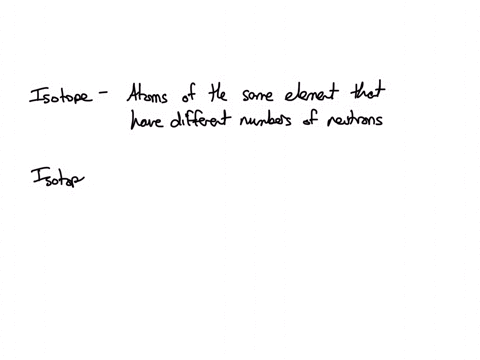 Isotope - Atoms of the same element that
have different numbers of neutrons
Isotop